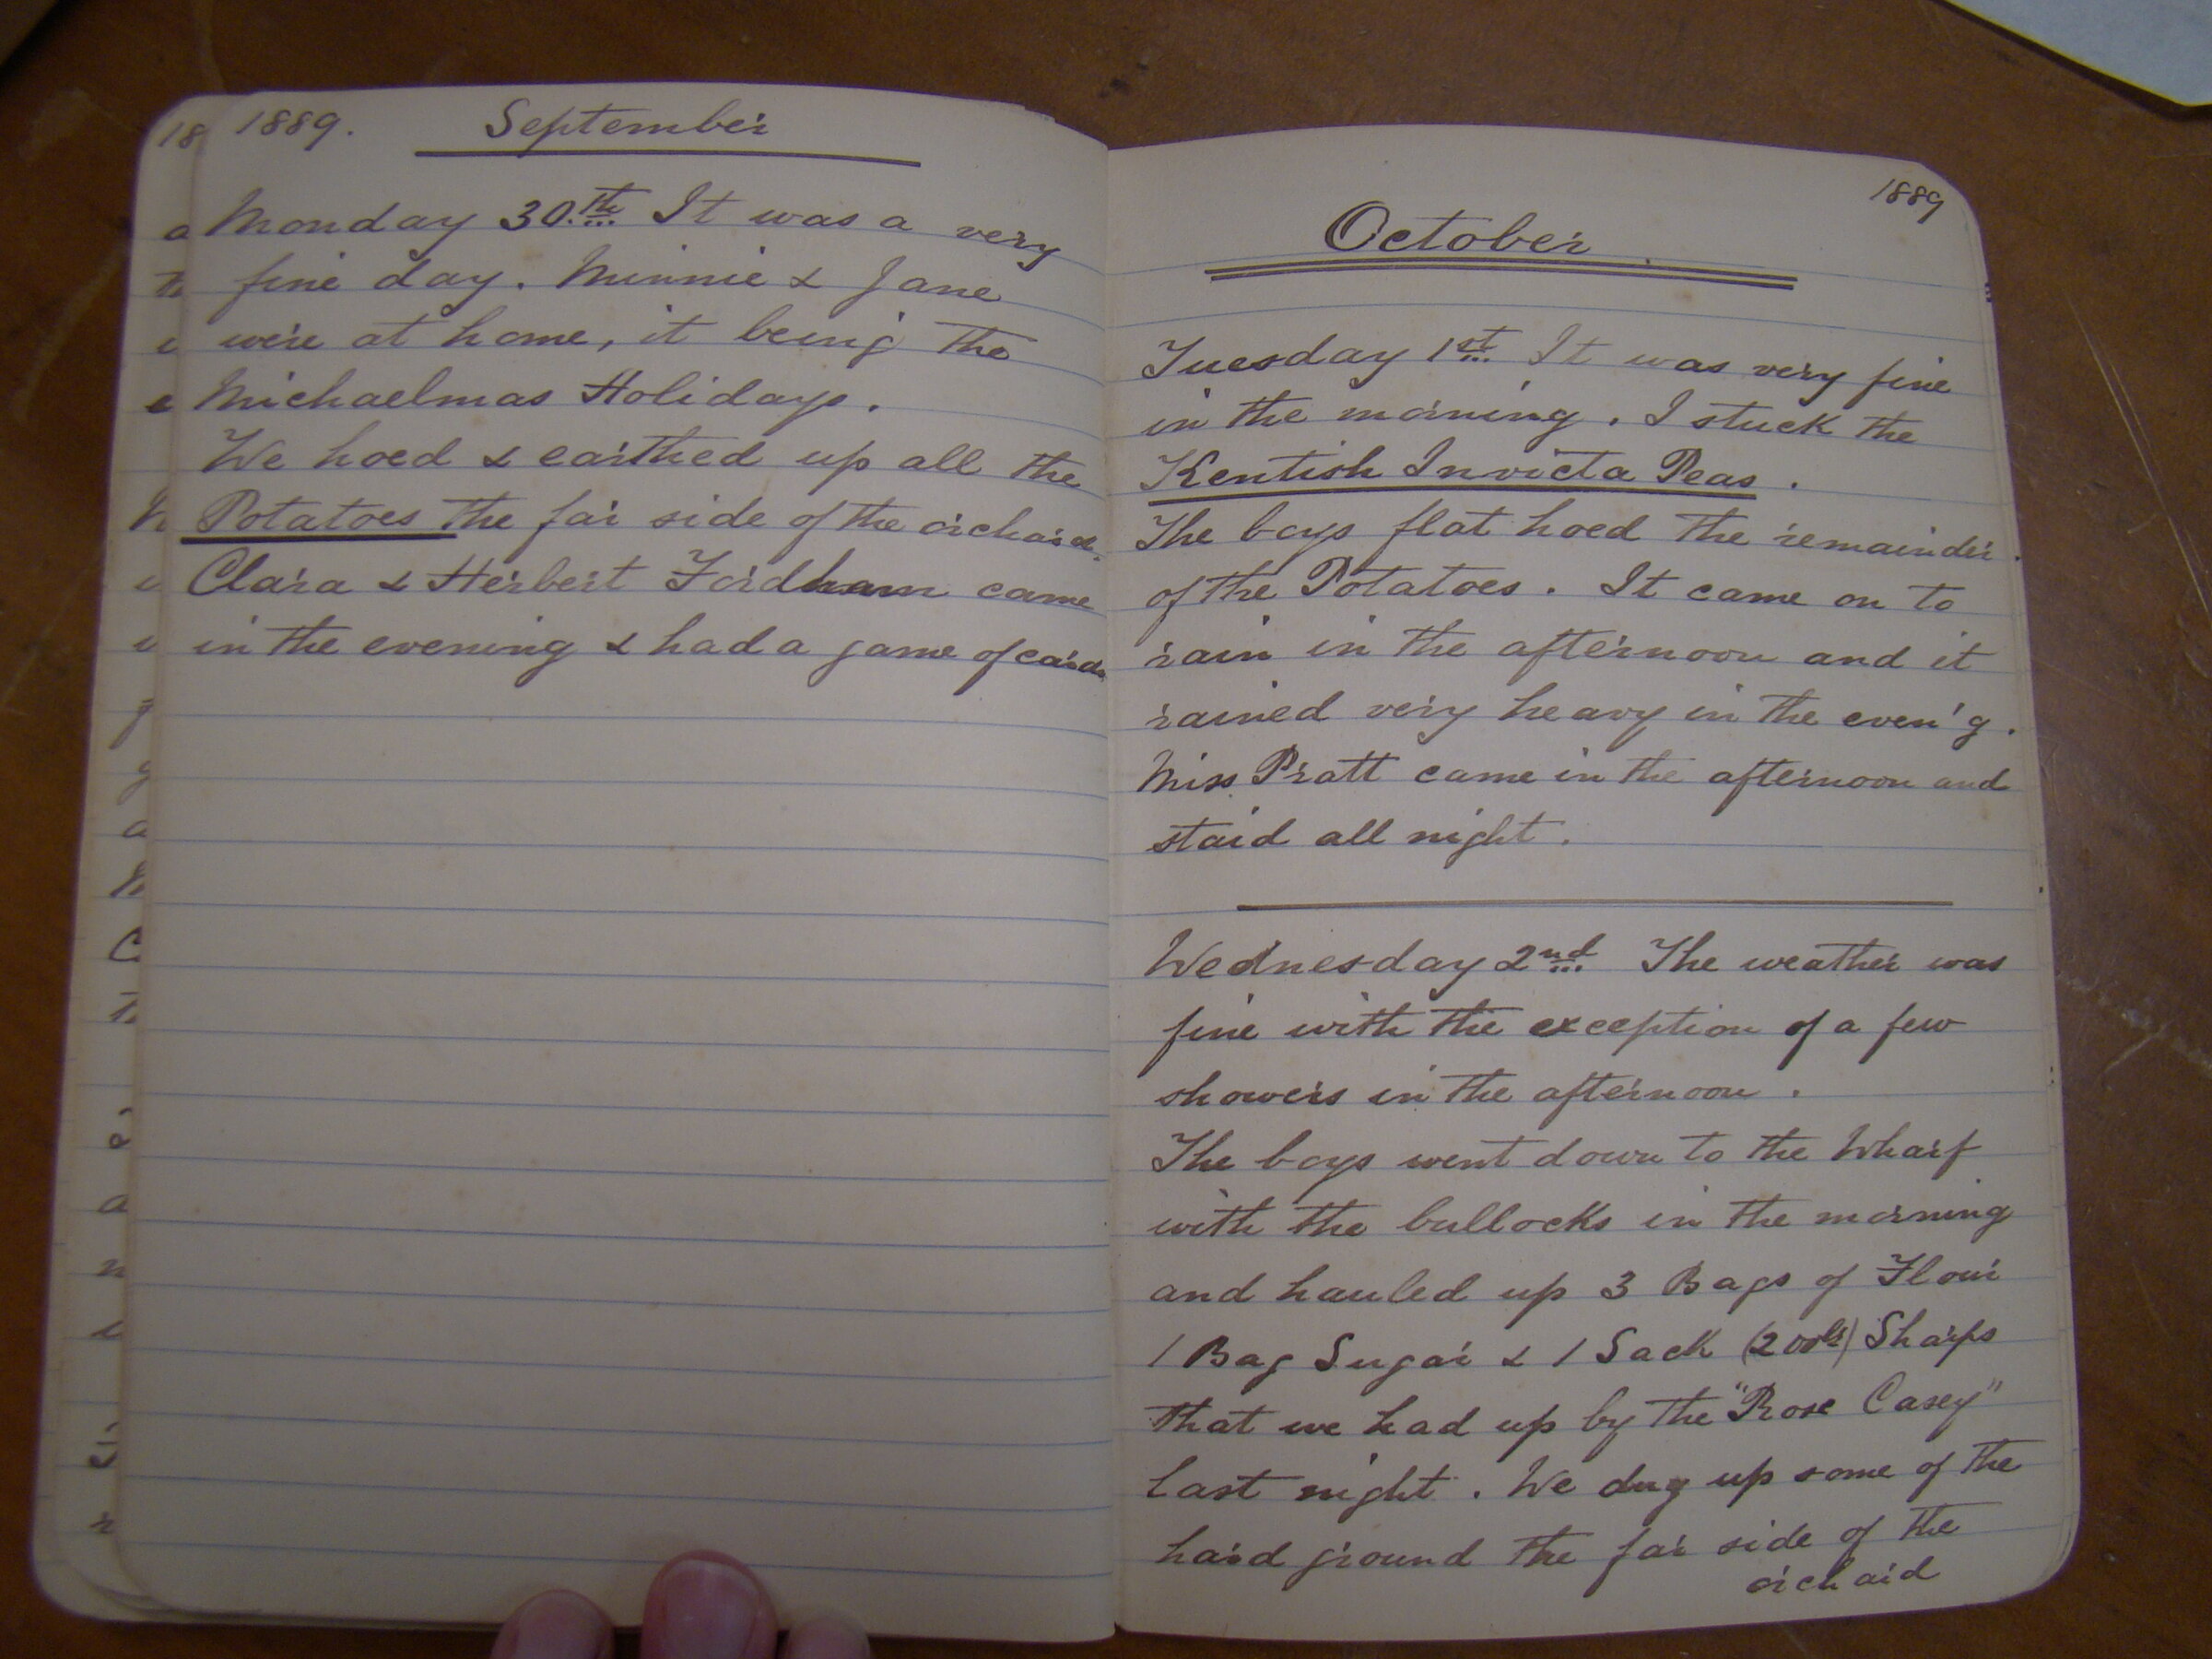 1889. September
Monday 30.th It was a very
fine day. Minnie & Jane
were at home, it being the
Michaelmas Holidays.
We hoed & earthed up all the
Potatoes the far side of the orchard.
Clara & Herbert Fordham came
in the evening & had a game of cards
1889
October
Tuesday 1st It was very fine
in the morning. I stuck the
Kentish Invicta Peas.
The boys flat hoed the remainder
of the Potatoes. It came on to
rain in the afternoon and it
rained very heavy in the even'g.
Miss Pratt came in the afternoon and
staid all night.
Wednesday 2nd The weather was
fine with the exception of a few
showers in the afternoon.
The boys went down to the Wharf
with the bullocks in the morning
and hauled up 3 Bags of Flour
1 Bag Sugar & 1 Sack (200lbs) Sharps
that we had up by the "Rose Casey"
last night. We dug up some of the
hard ground the far side of the
orchard